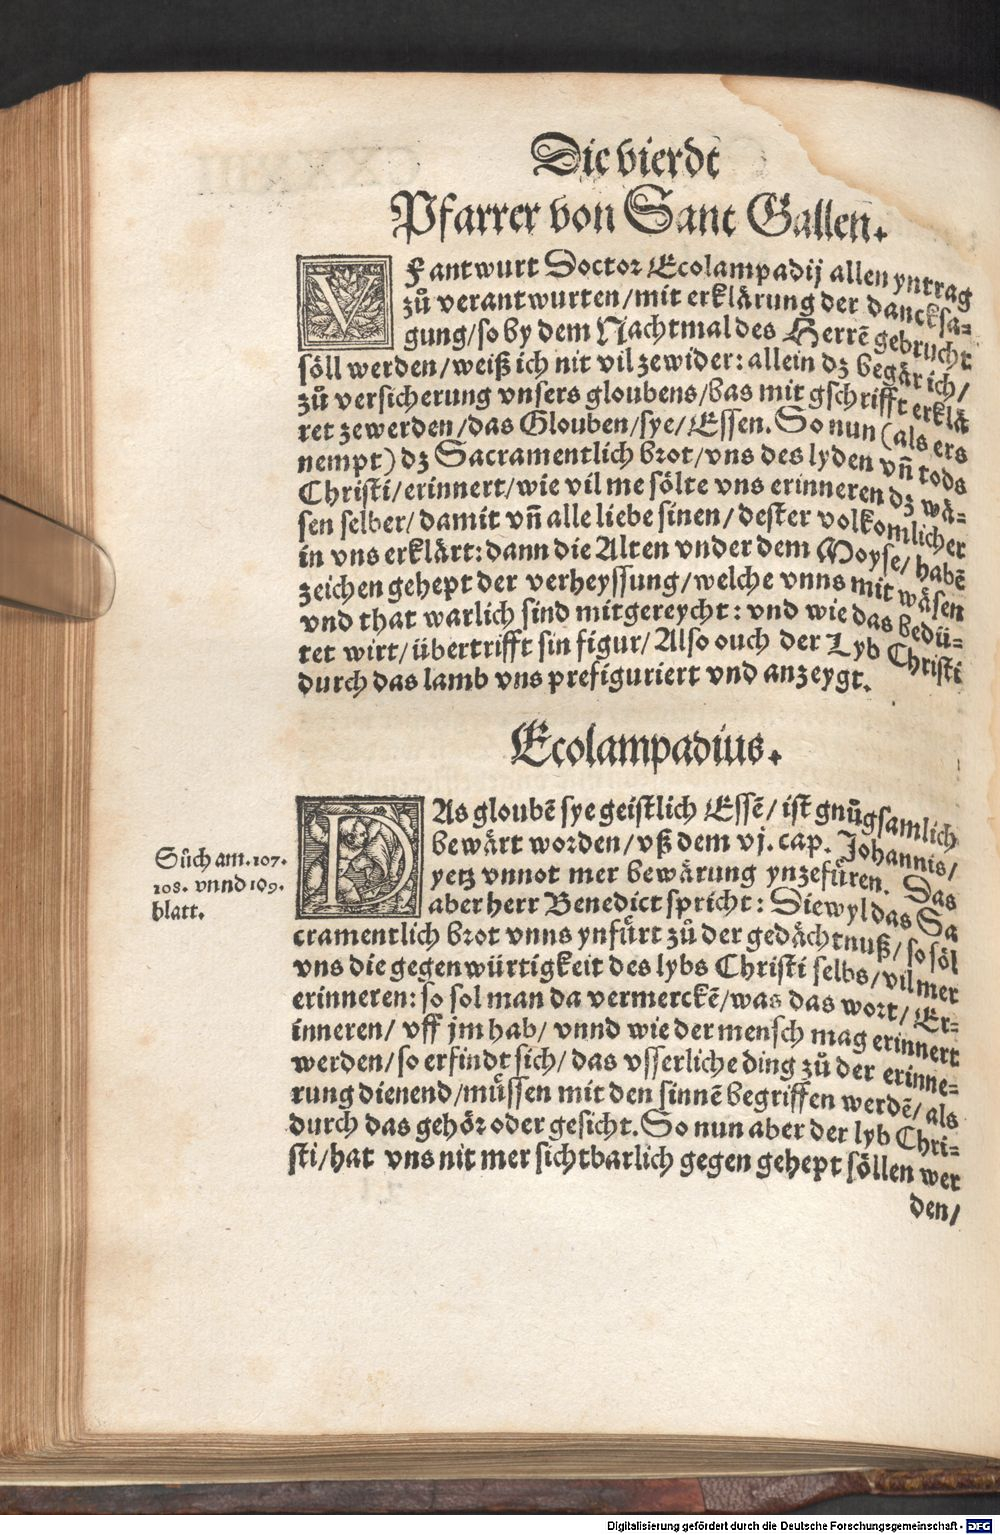 Die vierdt
Pfarrer von Sant Gallen.
VFantwurt Doctor Ecolampadij allen yntrag
zů verantwurten/mit erklärung der dancksa⸗
gung/so by dem Nachtmal des Herrē gebrucht
söll werden/weiß ich nit vil zewider: allein dz begär ich/
zů versicherung vnsers gloubens/bas mit gschrifft erklä
ret zewerden/das Glouben/sye/Essen. So nun (als ers
nempt) dz Sacramentlich brot/vns des lyden vn̄ tods
Christi/erinnert/wie vil me sölte vns erinneren dz wä⸗
sen selber/damit vn̄ alle liebe sinen/dester volkomlicher
in vns erklärt: dann die Alten vnder dem Moyse/habē
zeichen gehept der verheyssung/welche vnns mit wäsen
vnd that warlich sind mitgereycht: vnd wie das bedü⸗
tet wirt/übertrifft sin figur/Also ouch der Lyb Christi
durch das lamb vns prefiguriert vnd anzeygt.
Ecolampadius.
DAs gloubē sye geistlich Essē/ist gnůgsamlich
bewärt worden/vß dem vj. cap. Johannis/
yetz vnnot mer bewärung ynzefüren. Das
aber herr Benedict spricht: Diewyl das Sa
cramentlich brot vnns ynfürt zů der gedächtnuß/so söl
vns die gegenwürtigkeit des lybs Christi selbs/vil mer
erinneren: so sol man da vermerckē/was das wort/Er⸗
inneren/vff jm hab/vnnd wie der mensch mag erinnert
werden/so erfindt sich/das vsserliche ding zů der erinne⸗
rung dienend/müssen mit den sinnē begriffen werdē/als
durch das gehör oder gesicht. So nun aber der lyb Chri⸗
sti/hat vns nit mer sichtbarlich gegen gehept söllen wer
den/
Sůch am. 107.
108. vnnd 109.
blatt.
Digitalisierung gefördert durch die Deutsche Forschungsgemeinschaft - DFG